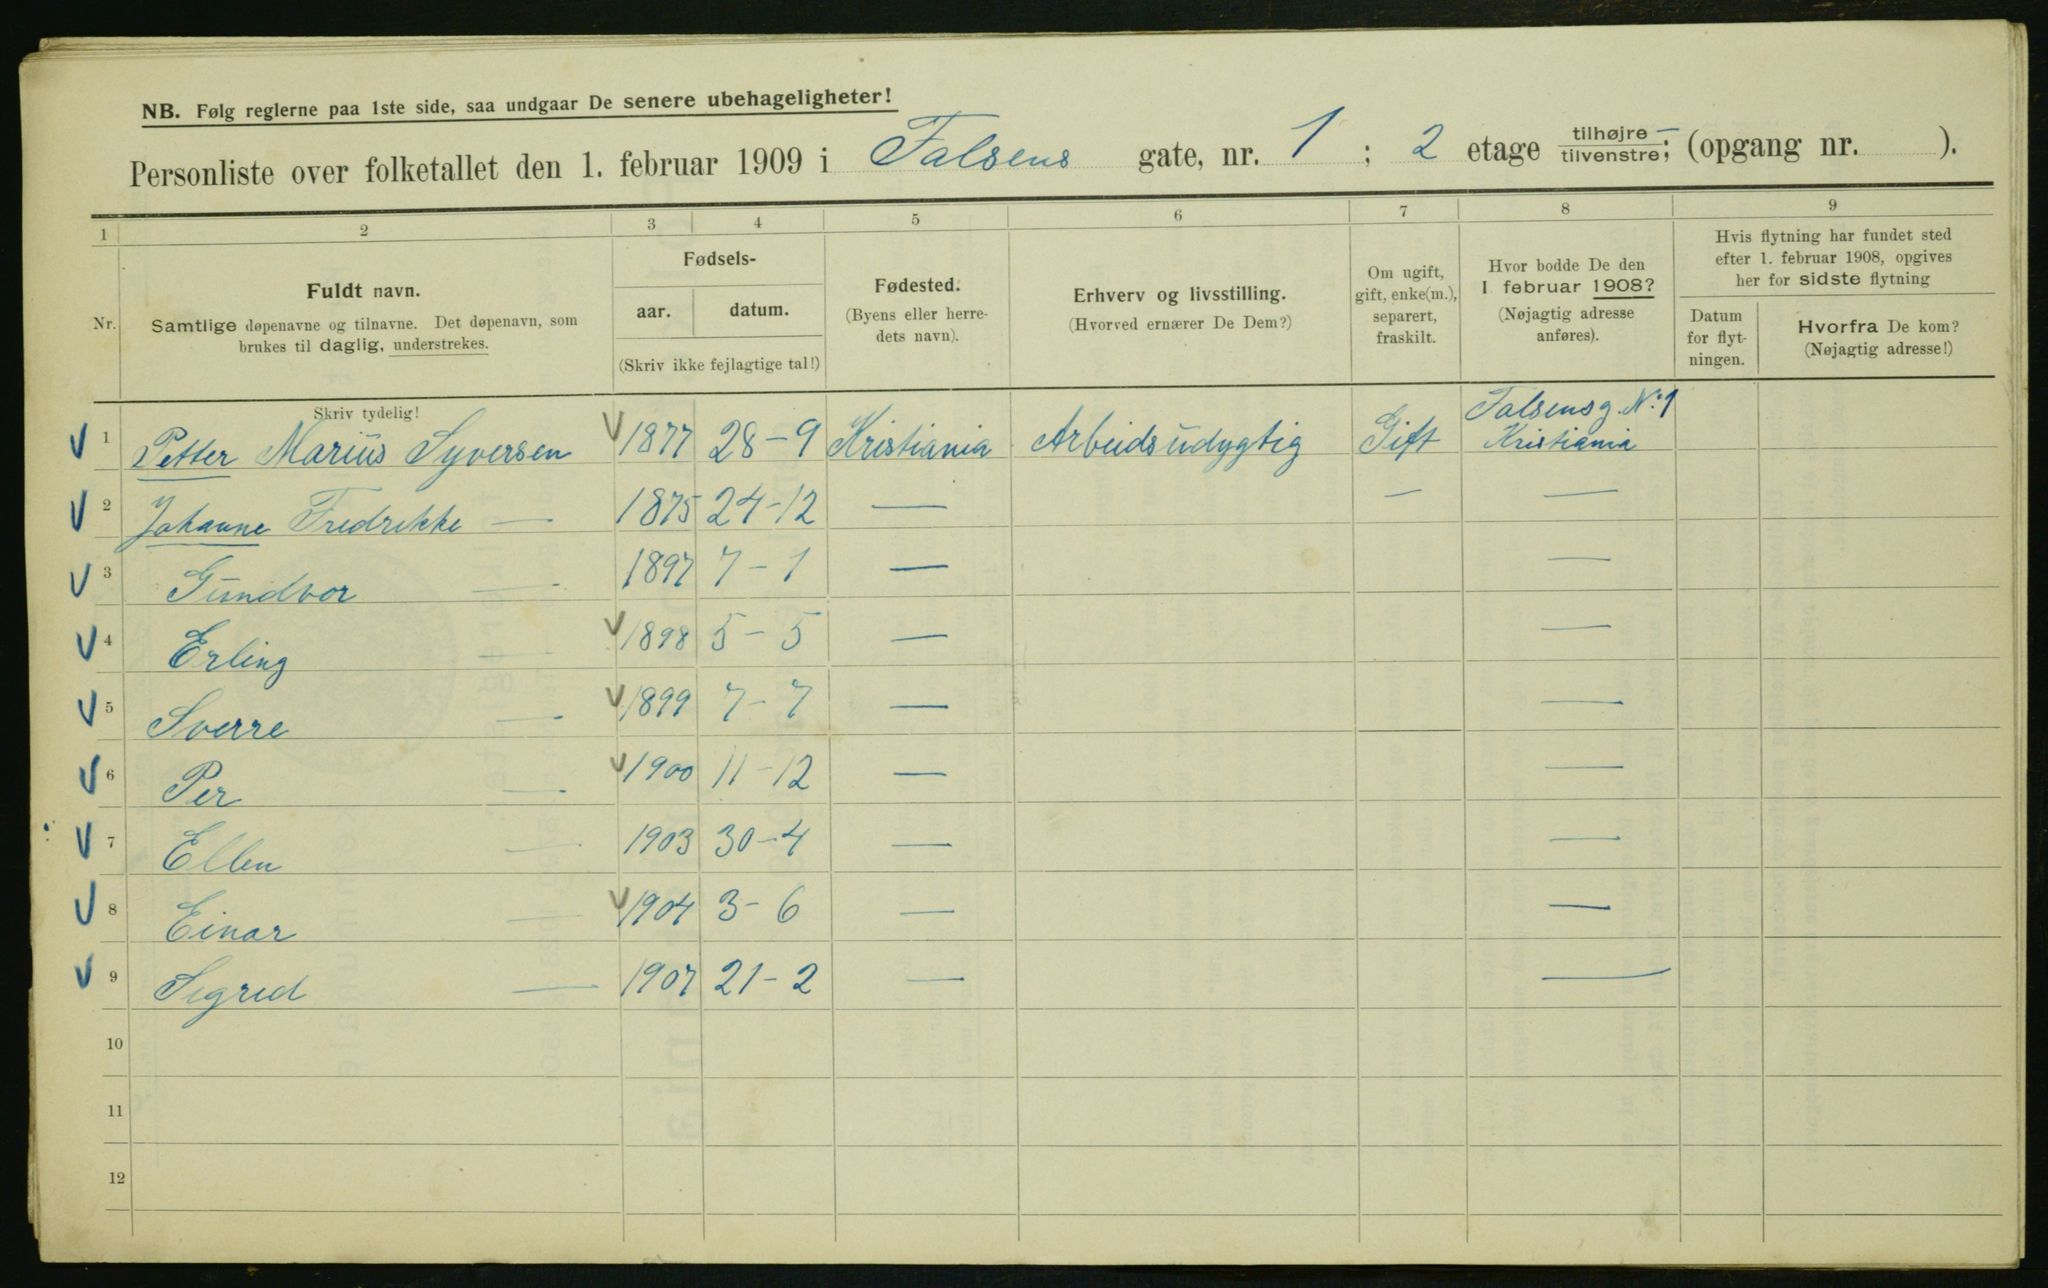 NB. Følg reglerne paa 1ste side, saa undgaar De senere ubehageligheter!
Personliste over folketallet den 1. februar 1909 i Falsens gate, nr. 1 ; 2 etage tilhøjre — tilvenstre; (opgang nr. ).
1 2 3 4 5 6 7 8 9
Nr.
Fuldt navn.
Samtlige døpenavne og tilnavne. Det døpenavn, som
brukes til daglig, understrekes.
Skriv tydelig!
Fødsels-
aar. datum.
(Skriv ikke fejlagtige tal!)
Fødested.
(Byens eller herre-
dets navn).
Erhverv og livsstilling.
(Hvorved ernærer De Dem?)
Om ugift,
gift, enke(m.),
separert,
fraskilt.
Hvor bodde De den
1 februar 1908?
(Nøjagtig adresse
anføres).
Hvis flytning har fundet sted
efter 1. februar 1908, opgives
her for sidste flytning
Datum
for flyt-
ningen.
Hvorfra De kom?
(Nøjagtig adresse!)
V 1 Petter Marius Syversen V 1877 28-9 Kristiania Arbeidsudygtig Gift Falsensg. No. 1 Kristiania
V 2 Johanne Fredrikke — 1875 24-12 — — —
V 3 Gundvor — 1897 7-1 — —
V 4 Erling — V 1898 5-5 — —
V 5 Sverre — V 1899 7-7 — —
V 6 Per — V 1900 11-12 — —
V 7 Ellen — 1903 30-4 — —
V 8 Einar — V 1904 3-6 — —
V 9 Sigrid — 1907 21-2 — —
10
11
12